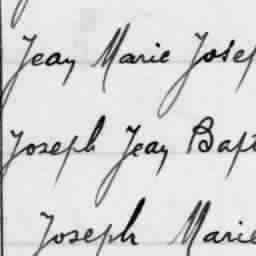 Jean Marie Josep
Joseph Jean Bapt
Joseph Marie